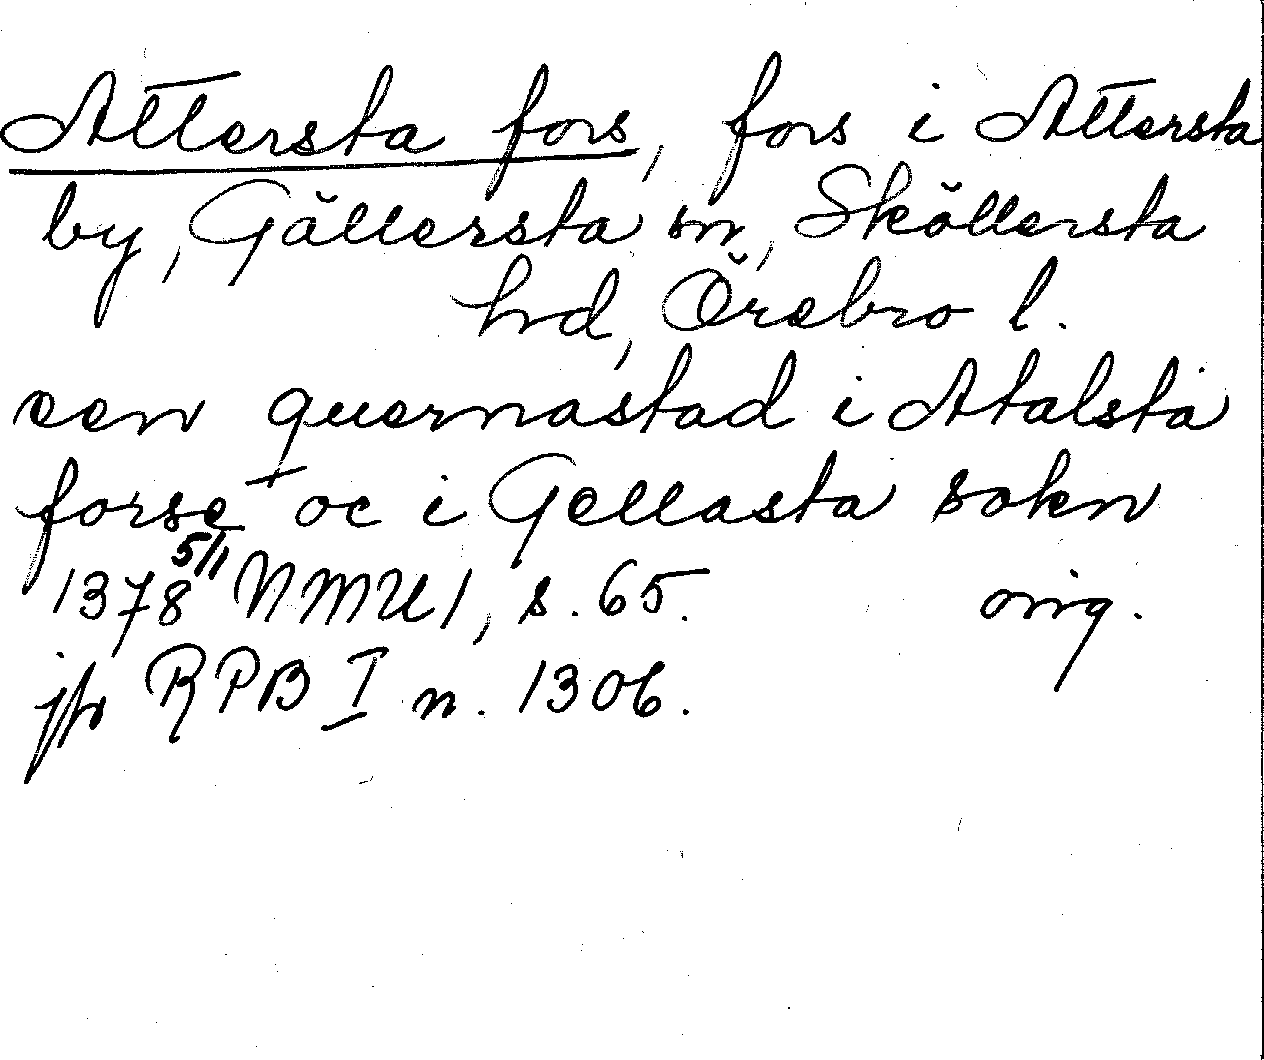 Attersta fors, fors i Attersta
by, Gällersta sn, Sköllersta
hd, Örebro l.
een quernastad i Atalsta
forse oc i Gellasta sokn
1378 5/1 NMU 1, s. 65. orig.
jfr RPB I n. 1306.